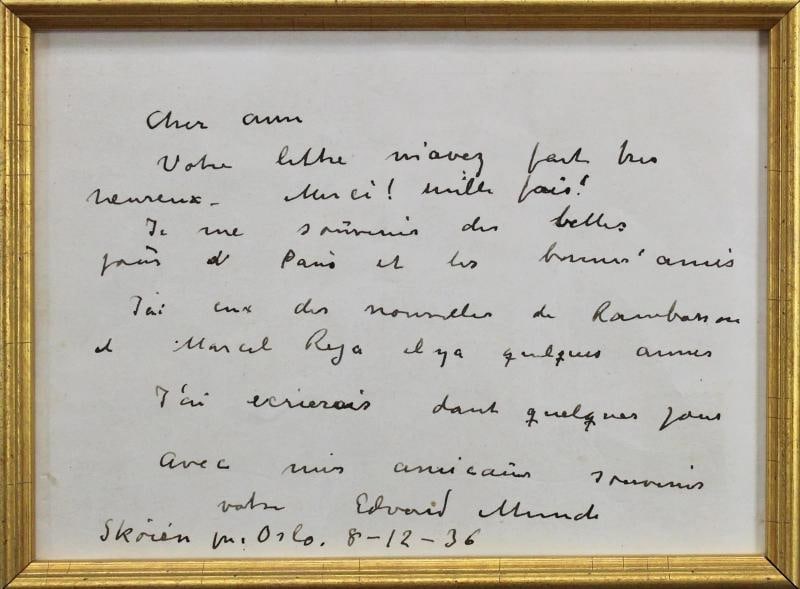 Cher ami
Votre lettre m'avez fait tres
heureux - Merci! mille fois!
Je me souvenir des belles
jours d Paris et les bonnes amis
J'ai eux des nouvelles de Rambosson
et Marcel Reja il ya quelques annes
J'ai ecrierais dant quelques jours
Avec mis amicaux souvenirs
votre Edvard Munch
Skøien pr. Oslo. 8-12-36